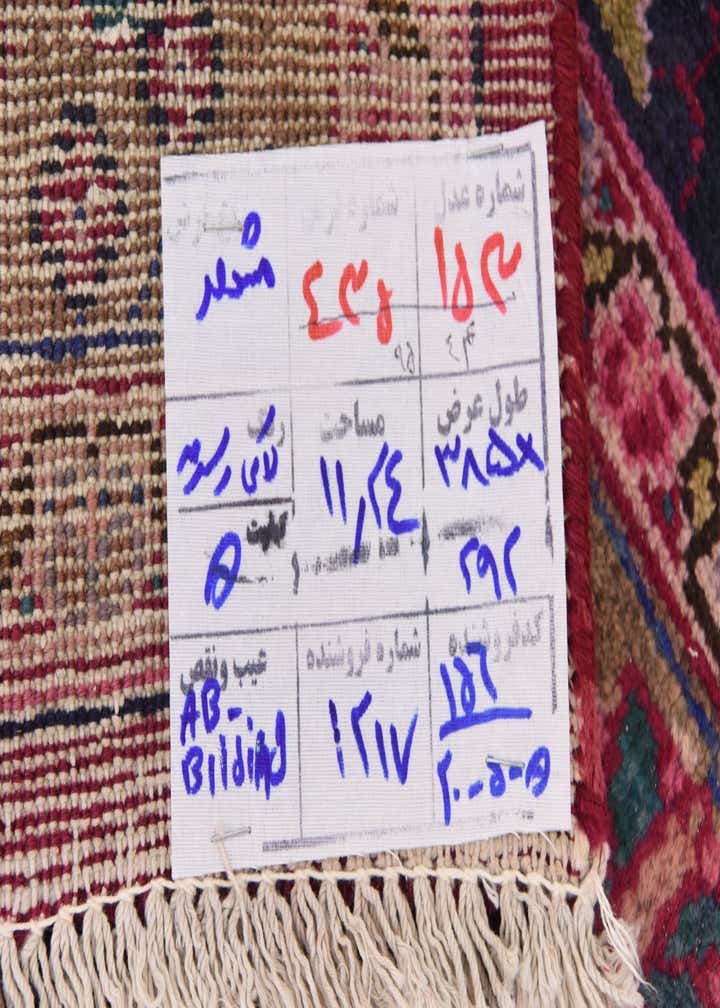 شماره عدل
۱۵۳
۴۳
شماره فرش
۴۳۵
۹۵
مشهد
طول عرض
۳۸۵×
۲۹۲
مساحت
۱۱/۲۴
رنگ
لاکی
۵
کد فروشنده
۱۵۶
۲۰-۵-۵
شماره فروشنده
۱۲۱۷
عیب و نقص
AB-
Bilding